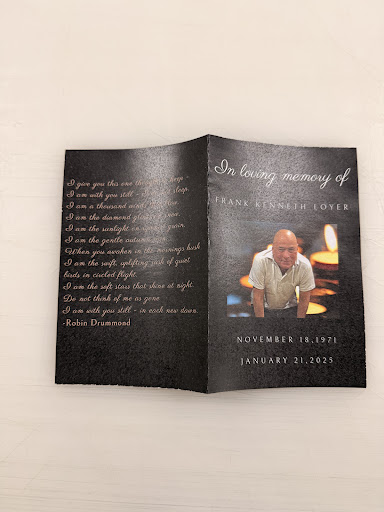 I give you this one tho keep -
I am with you still - I sleep.
I am a thousand wind
I am the diamond glin snow.
I am the sunlight on grain.
I am the gentle autumn
When you awaken in the mornings hush
I am the swift, uplifting rush of quiet
birds in circled flight.
I am the soft stars that shine at night.
Do not think of me as gone
I am with you still - in each new dawn.
-Robin Drummond
In loving memory of
FRANK KENNETH LOYER
NOVEMBER 18,1971
JANUARY 21,2025